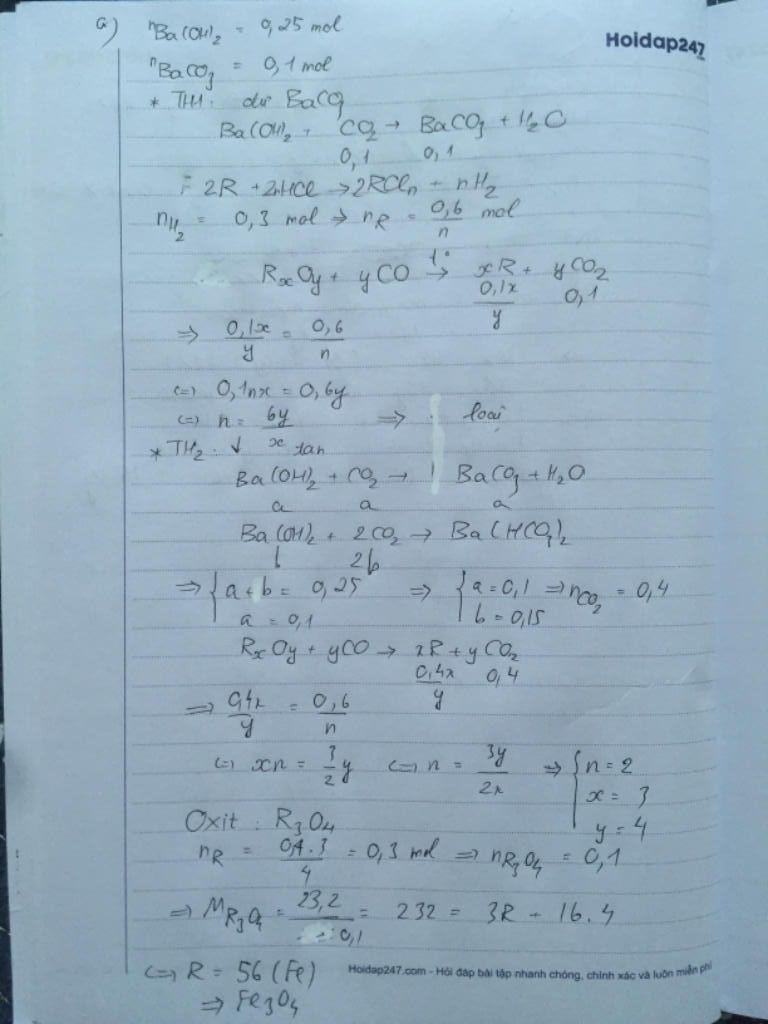 a) nBa(OH)₂ = 0,25 mol
Hoidap247
.com
nBaCO₃ = 0,1 mol
* TH1: dư BaCO₃
Ba(OH)₂ + CO₂ → BaCO₃ + H₂O
0,1 0,1
2R + 2nHCl → 2RClₙ + nH₂
nH₂ = 0,3 mol ⇒ nR = 0,6/n mol
RxOy + yCO t°→ xR + yCO₂
0,1x/y 0,1
⇒ 0,1x/y = 0,6/n
(=) 0,1nx = 0,6y
(=) n = 6y/x ⇒ loại
* TH2: ↓ tan
Ba(OH)₂ + CO₂ → BaCO₃ + H₂O
a a a
Ba(OH)₂ + 2CO₂ → Ba(HCO₃)₂
b 2b
⇒ { a + b = 0,25 ⇒ { a = 0,1 ⇒ nCO₂ = 0,4
a = 0,1 b = 0,15
RxOy + yCO → xR + yCO₂
0,4x/y 0,4
⇒ 0,4x/y = 0,6/n
(=) xn = 3/2 y (=) n = 3y/2x ⇒ { n = 2
x = 3
y = 4
Oxit: R₃O₄
nR = 0,4.3/4 = 0,3 mol ⇒ nR₃O₄ = 0,1
⇒ MR₃O₄ = 23,2/0,1 = 232 = 3R + 16.4
(=) R = 56 (Fe)
Hoidap247.com - Hỏi đáp bài tập nhanh chóng, chính xác và luôn miễn phí
⇒ Fe₃O₄